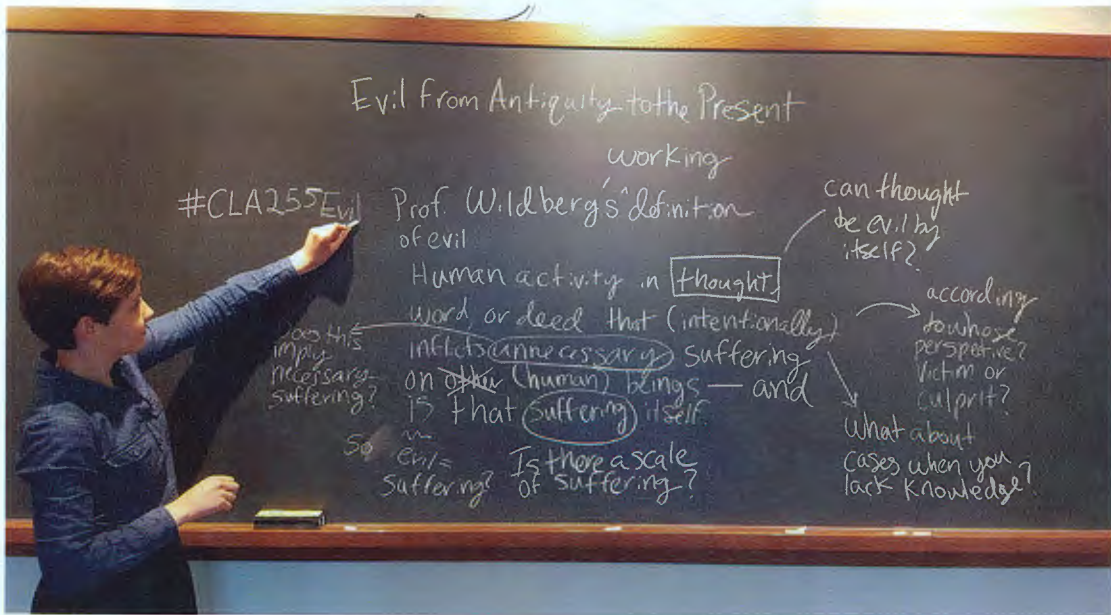 Evil from Antiquity to the Present
working
#CLA255Evil
Prof. Wildberg's ^ definition
of evil
Human activity in thought,
word, or deed that (intentionally)
inflicts unnecessary suffering
on other (human) beings — and
is that suffering itself.
can thought
be evil by
itself?
according
to whose
perspetive?
victim or
culprit?
What about
cases when you
lack knowledge?
Does this
imply
necessary
suffering?
So
evil =
suffering?
Is there a scale
of suffering?